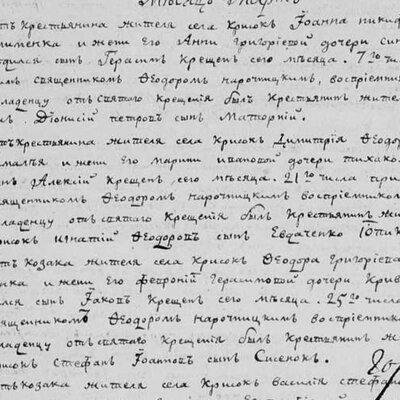 Мѣсяцъ Мартъ
отъ крестьянина жителя села Крисокъ Iоанна Никид
именка и жени Его Анни Григорiевой дочери син
родился сынъ Герасим крещен сего мѣсяца 7го чис
им священникомъ Ѳеодоромъ Нарочтицкимъ, воспрiемни
младенцу отъ святаго крещенiя былъ крестьянин жител
Дiонисiй Петровъ сынъ Маторнiй.
отъ крестьянина жителя села Крисокъ Димитрiя Ѳеодор
и жени его Марiи Ивановой дочери
сынъ Алексiй крещен сего мѣсяца 21го числа при
священникомъ Ѳеодоромъ Нарочтицкимъ воспрiемником
младенцу отъ святаго крещенiя былъ крестьянин жит
Крисокъ Игнатiй Ѳеодоровъ сынъ Евдаченко
отъ козака жителя села Крисокъ Ѳеодора Григорiева
енка и жени Его Ѳевронiи Герасимовой дочери Крив
родился сынъ Iаковъ крещен сего мѣсяца 25го числа
священникомъ Ѳеодоромъ Нарочтицкимъ воспрiемник
младенцу отъ святаго крещенiя былъ крестьянин ж
Крисокъ Стефанъ Iоанновъ сынъ Сисенокъ.
отъ козака жителя села Крисокъ Василiя Стефано